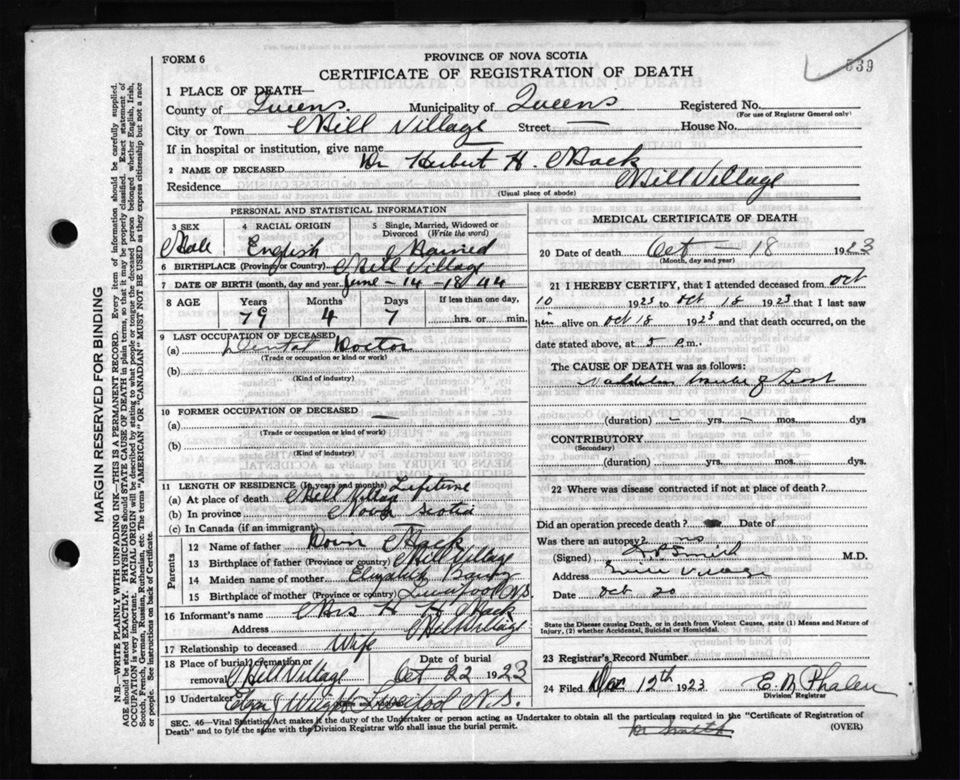 539
FORM 6
PROVINCE OF NOVA SCOTIA
CERTIFICATE OF REGISTRATION OF DEATH
1 PLACE OF DEATH—
County of Queens. Municipality of Queens Registered No.
(For use of Registrar General only)
City or Town Mill Village Street — House No.
If in hospital or institution, give name
2 NAME OF DECEASED Dr Herbert H. Mack
Residence Mill Village
(Usual place of abode)
PERSONAL AND STATISTICAL INFORMATION
3 SEX Male
4 RACIAL ORIGIN English
5 Single, Married, Widowed or Divorced (Write the word) Married
6 BIRTHPLACE (Province or Country) Mill Village
7 DATE OF BIRTH (month, day and year) June - 14 - 1844
8 AGE Years Months Days If less than one day,
79 4 7 hrs. or min.
9 LAST OCCUPATION OF DECEASED
(a) Dental Doctor
(Trade or occupation or kind of work)
(b)
(Kind of industry)
10 FORMER OCCUPATION OF DECEASED
(a) —
(Trade or occupation or kind of work)
(b)
(Kind of industry)
11 LENGTH OF RESIDENCE (In years and months) Lifetime
(a) At place of death Mill Village
(b) In province Nova Scotia
(c) In Canada (if an immigrant)
Parents
12 Name of father Mack
13 Birthplace of father (Province or country) Mill Village
14 Maiden name of mother Elizabeth
15 Birthplace of mother (Province or country) Liverpool N.S.
16 Informant's name Mrs H H Mack
Address Mill Village
17 Relationship to deceased Wife
18 Place of burial, cremation or removal Mill Village
Date of burial Oct 22 1923
19 Undertaker Liverpool N.S.
MEDICAL CERTIFICATE OF DEATH
20 Date of death Oct — 18 1923
(Month, day and year)
21 I HEREBY CERTIFY, that I attended deceased from Oct
10 1923 to Oct 18 1923 that I last saw
him alive on Oct 18 1923 and that death occurred, on
date stated above, at 5 P.m.
The CAUSE OF DEATH was as follows:
(duration) — yrs. — mos. dys
CONTRIBUTORY
(Secondary)
(duration) yrs. mos. dys.
22 Where was disease contracted if not at place of death?
Did an operation precede death? Date of
Was there an autopsy? no
(Signed) Smith M.D.
Address Mill Village
Date Oct 20
State the Disease causing Death, or in death from Violent Causes, state (1) Means and Nature of Injury, (2) whether Accidental, Suicidal or Homicidal.
23 Registrar's Record Number
24 Filed 12th 1923 E. M Phalen
Division Registrar
SEC. 46—Vital Statistics Act makes it the duty of the Undertaker or person acting as Undertaker to obtain all the particulars required in the "Certificate of Registration of
Death" and to fyle the same with the Division Registrar who shall issue the burial permit.
(OVER)
Dr Smith
MARGIN RESERVED FOR BINDING
N.B.—WRITE PLAINLY WITH UNFADING INK—THIS IS A PERMANENT RECORD. Every item of information should be carefully supplied.
AGE should be stated EXACTLY. PHYSICIANS should STATE CAUSE OF DEATH in plain terms, so that it may be properly classified. Exact statement of
OCCUPATION is very important. RACIAL ORIGIN will be described by stating to what people or tongue the deceased person belonged whether English, Irish,
Scotch, French, German, Russian, Ruthenian, etc. The terms "AMERICAN" or "CANADIAN" MUST NOT BE USED as they express citizenship but not a race
or people. See instructions on back of Certificate.